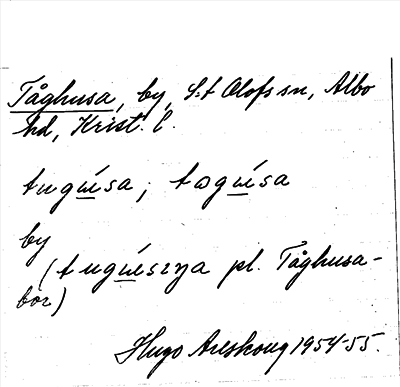 Tåghusa, by, S:t Olofs sn, Albo
hd, Krist. l.
tugúsa, tɷgúsa
by
(tugúsɿŋa pl. Tåghusa-
bor)
Hugo Areskoug 1954-55.